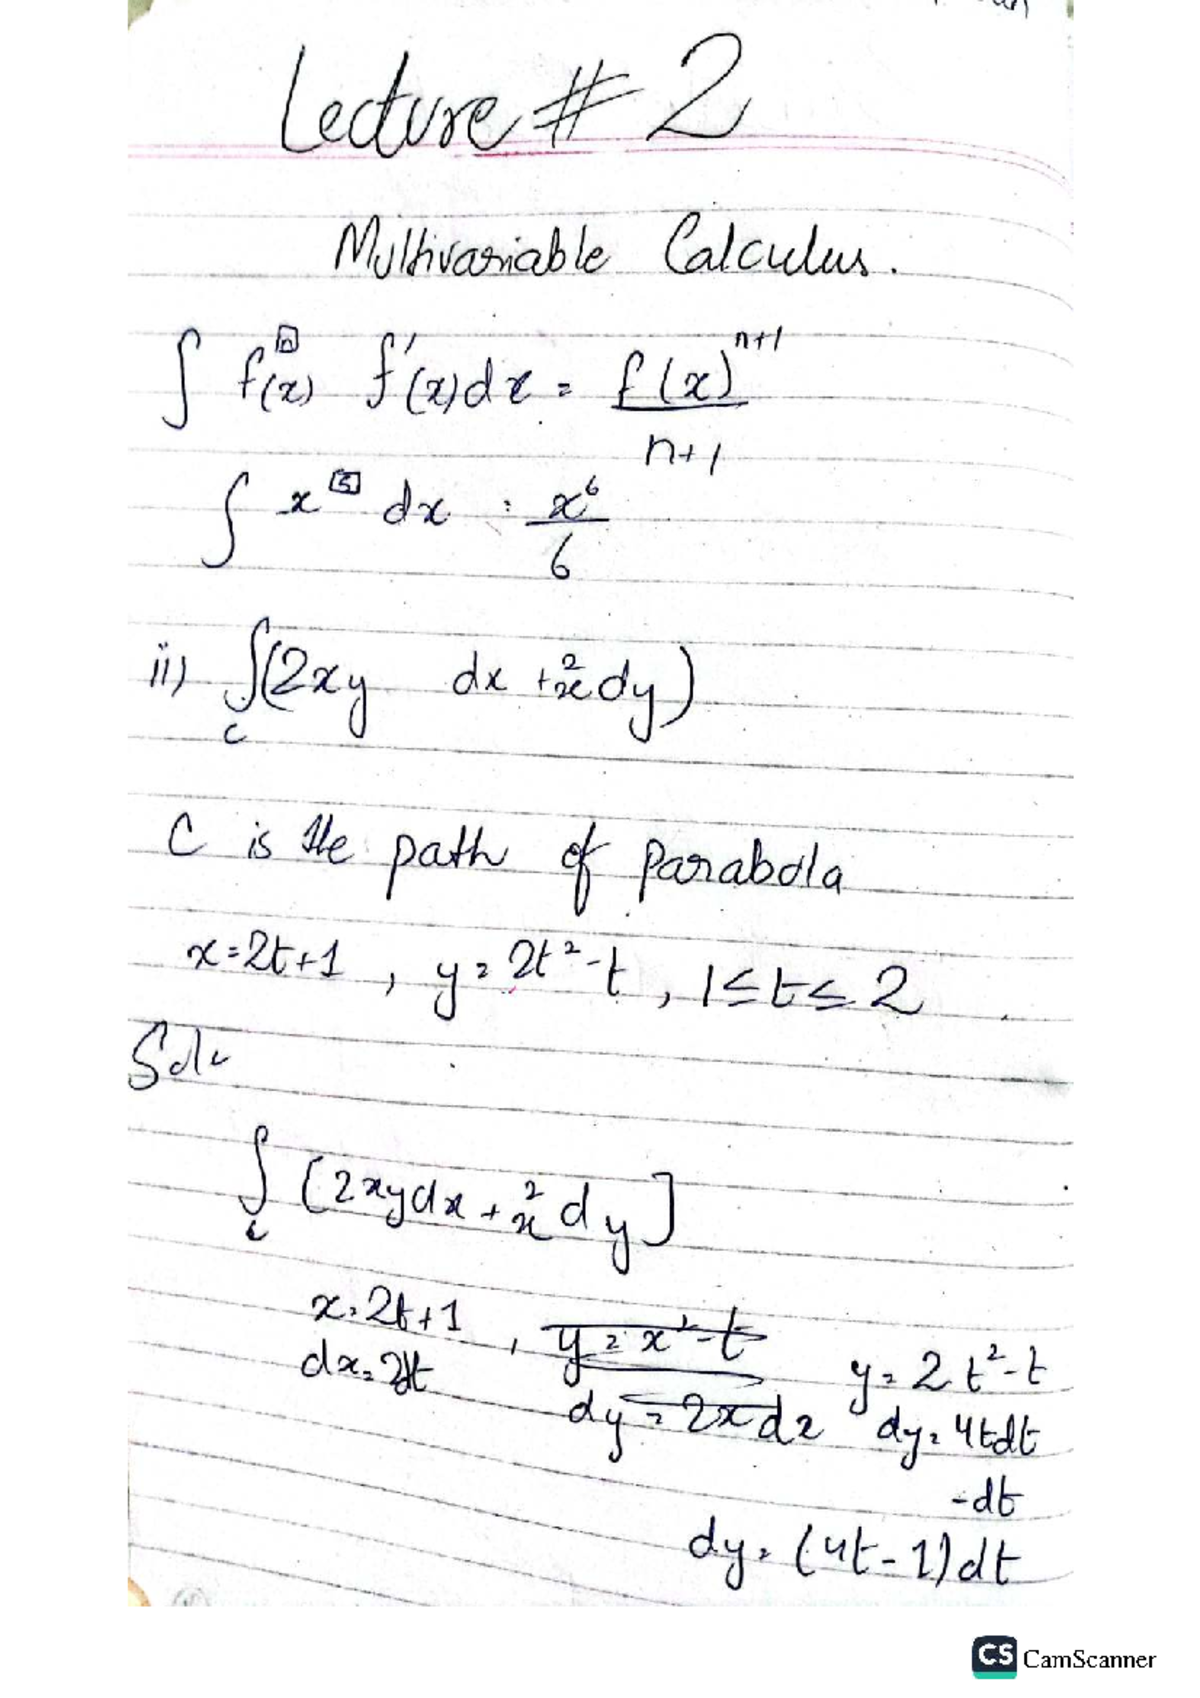 Lecture # 2
Multivariable Calculus.
∫ f(x)^n f'(x)dx = f(x)^(n+1) / n+1
∫ x^5 dx = x^6 / 6
ii) ∫_C (2xy dx + x^2 dy)
C is the path of parabola
x=2t+1 , y=2t^2-t , 1≤t≤2
Sol:
∫_C [2xydx + x^2 dy]
x=2t+1 , y=x^2-t y=2t^2-t
dx=2dt dy=2xdx dy=4tdt
-dt
dy=(4t-1)dt
CS CamScanner